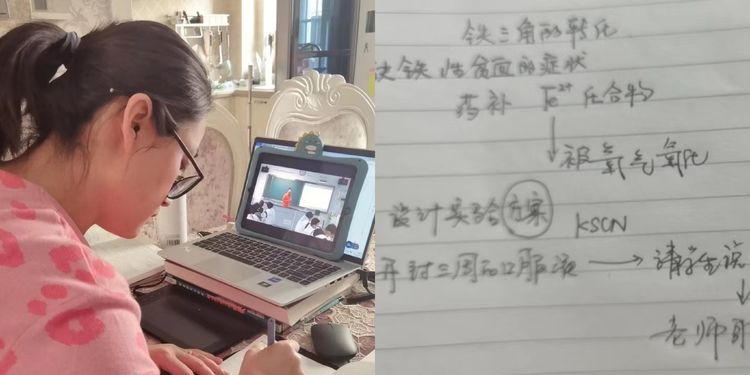 铁三角的转化
缺铁性贫血的症状
药补 Fe²⁺化合物
被氧气氧化
设计实验方案 KSCN
开封三周的口服液 → 请学生说
老师